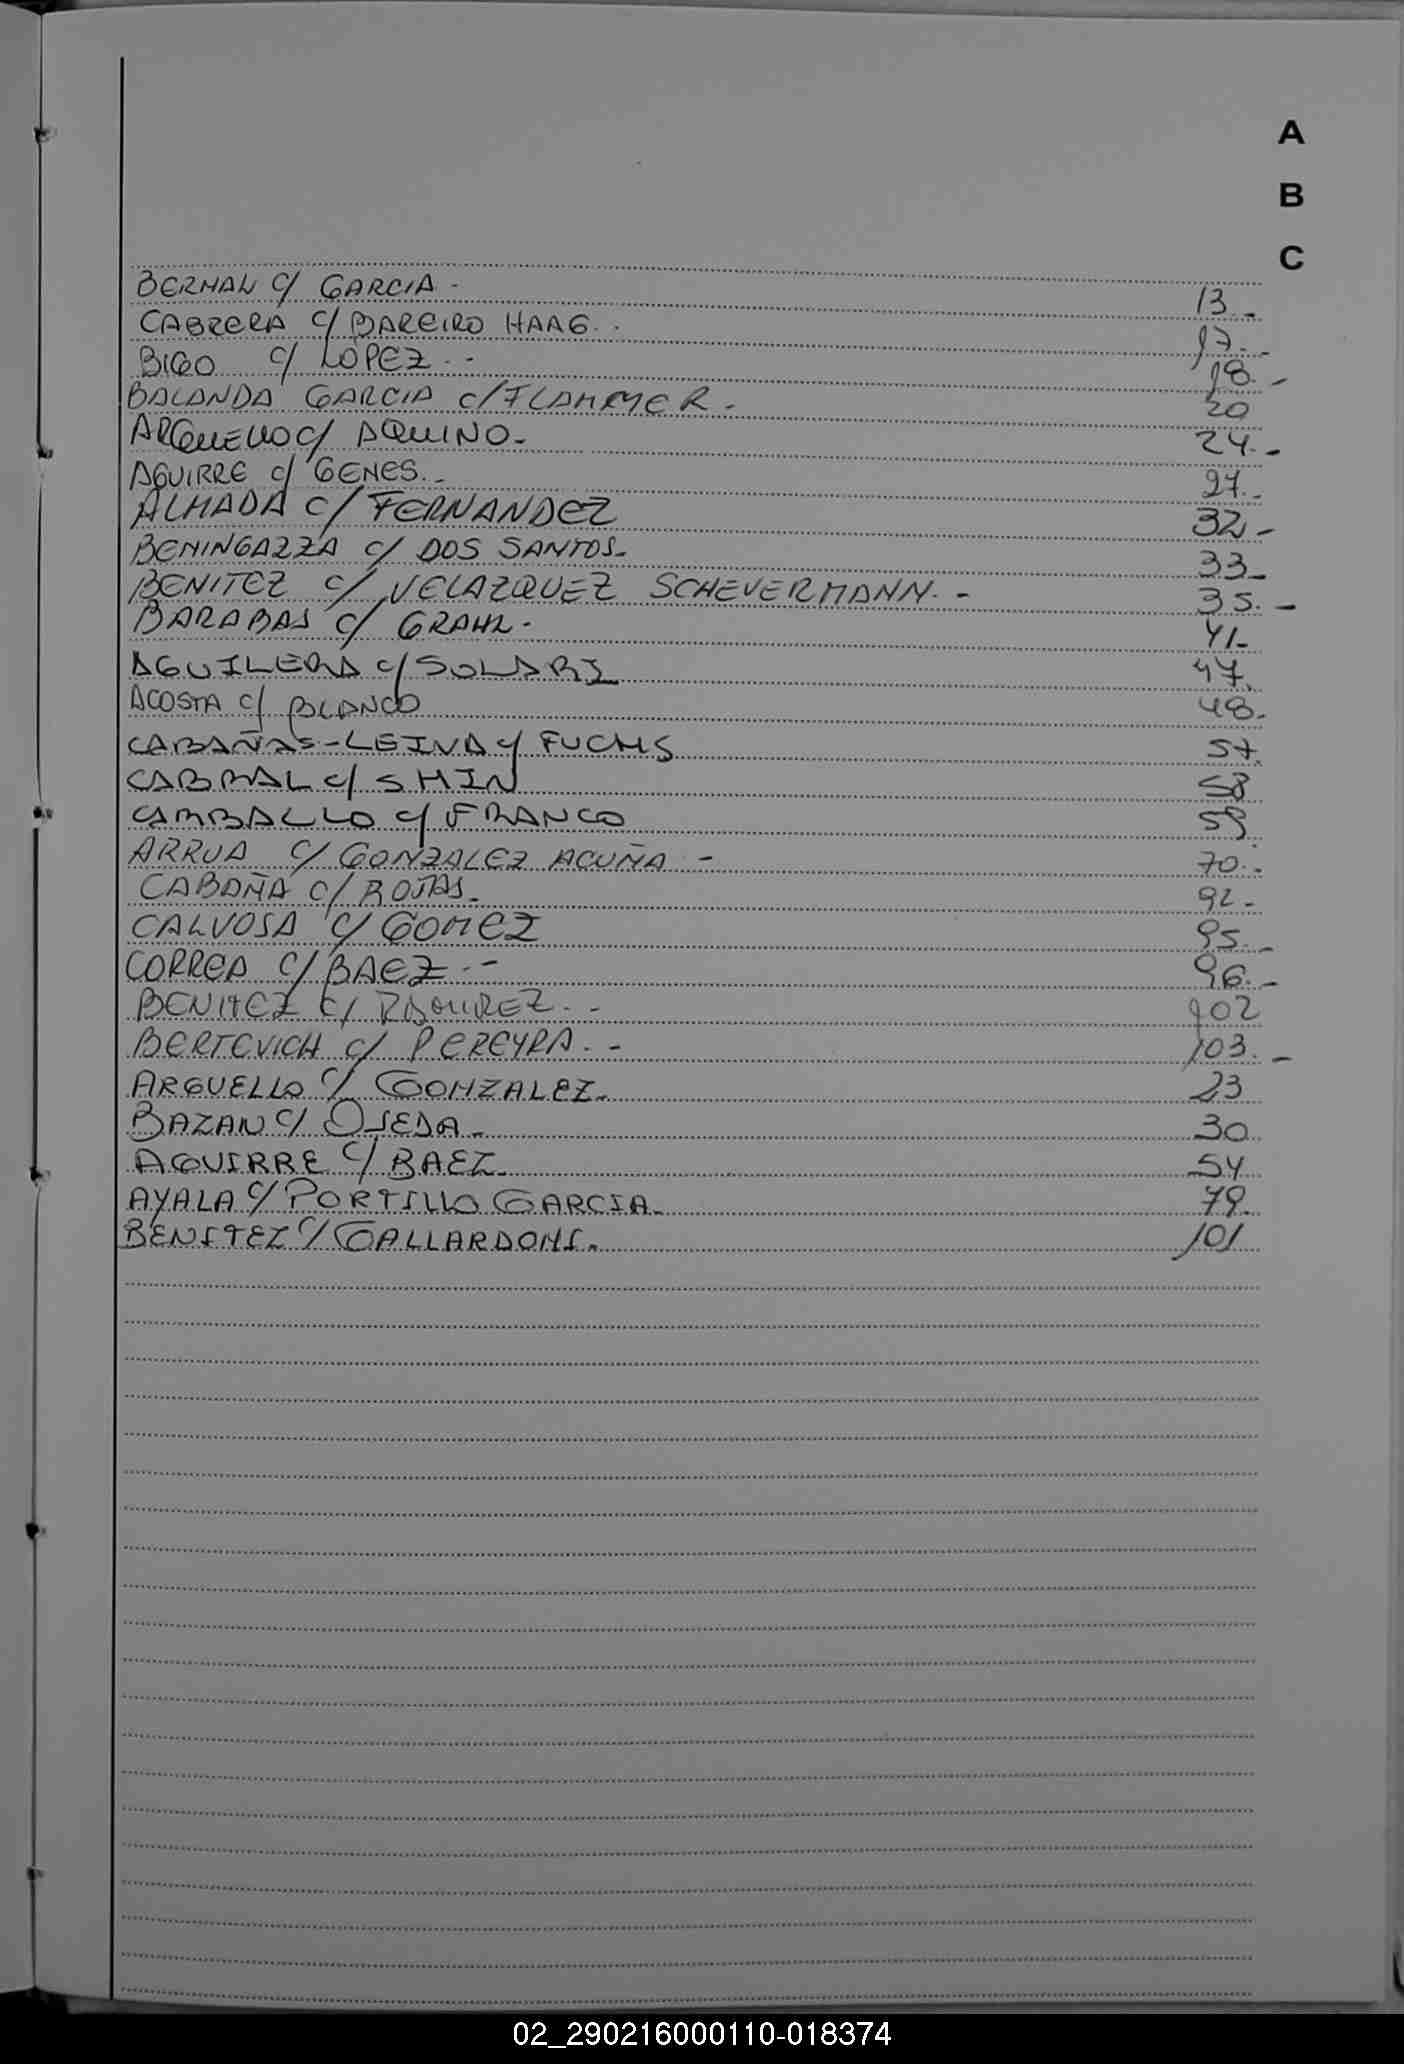 A
B
C
BERNAL C/ GARCIA - 13.-
CABRERA C/ BAREIRO HAAG.. 17.-
BIGO C/ LOPEZ.- 18.-
BALANDA GARCIA C/ FLAMMER.- 20
ARGUELLO C/ AQUINO.- 24.-
AGUIRRE C/ GENES.- 27.-
ALMADA C/ FERNANDEZ 32.-
BENINGAZZA C/ DOS SANTOS.- 33.-
BENITEZ C/ VELAZQUEZ SCHEVERMANN.- 35.-
BARABAS C/ GRAHL.- 41.-
AGUILERA C/ SOLARI 47.
ACOSTA C/ BLANCO 48.
CABAÑAS-LEIVA Y FUCHS 57.
CABRAL C/ SHIN 58
CARBALLO C/ FRANCO 59.
ARRUA C/ GONZALEZ ACUÑA - 70.-
CABAÑA C/ ROJAS.- 92.-
CALVOSA C/ GOMEZ 95.-
CORREA C/ BAEZ.- 96.-
BENITEZ C/ RAMIREZ.- 102
BERTEVICH C/ PEREYRA.- 103.-
ARGUELLO C/ GONZALEZ.- 23
BAZAN C/ OJEDA.- 30
AGUIRRE C/ BAEZ.- 54
AYALA C/ PORTILLO GARCIA.- 79.
BENITEZ C/ GALLARDONI.- 101
02_290216000110-018374